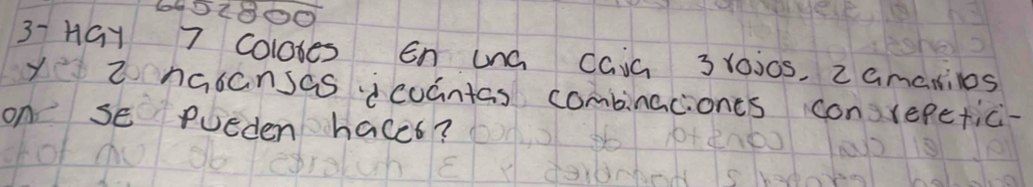 6652800
3- HaY 7 colores en una caja 3 rojos, 2 amarillos
y 2 naranjas ¿cuántas combinaciones con repetici-
on se pueden hacer?